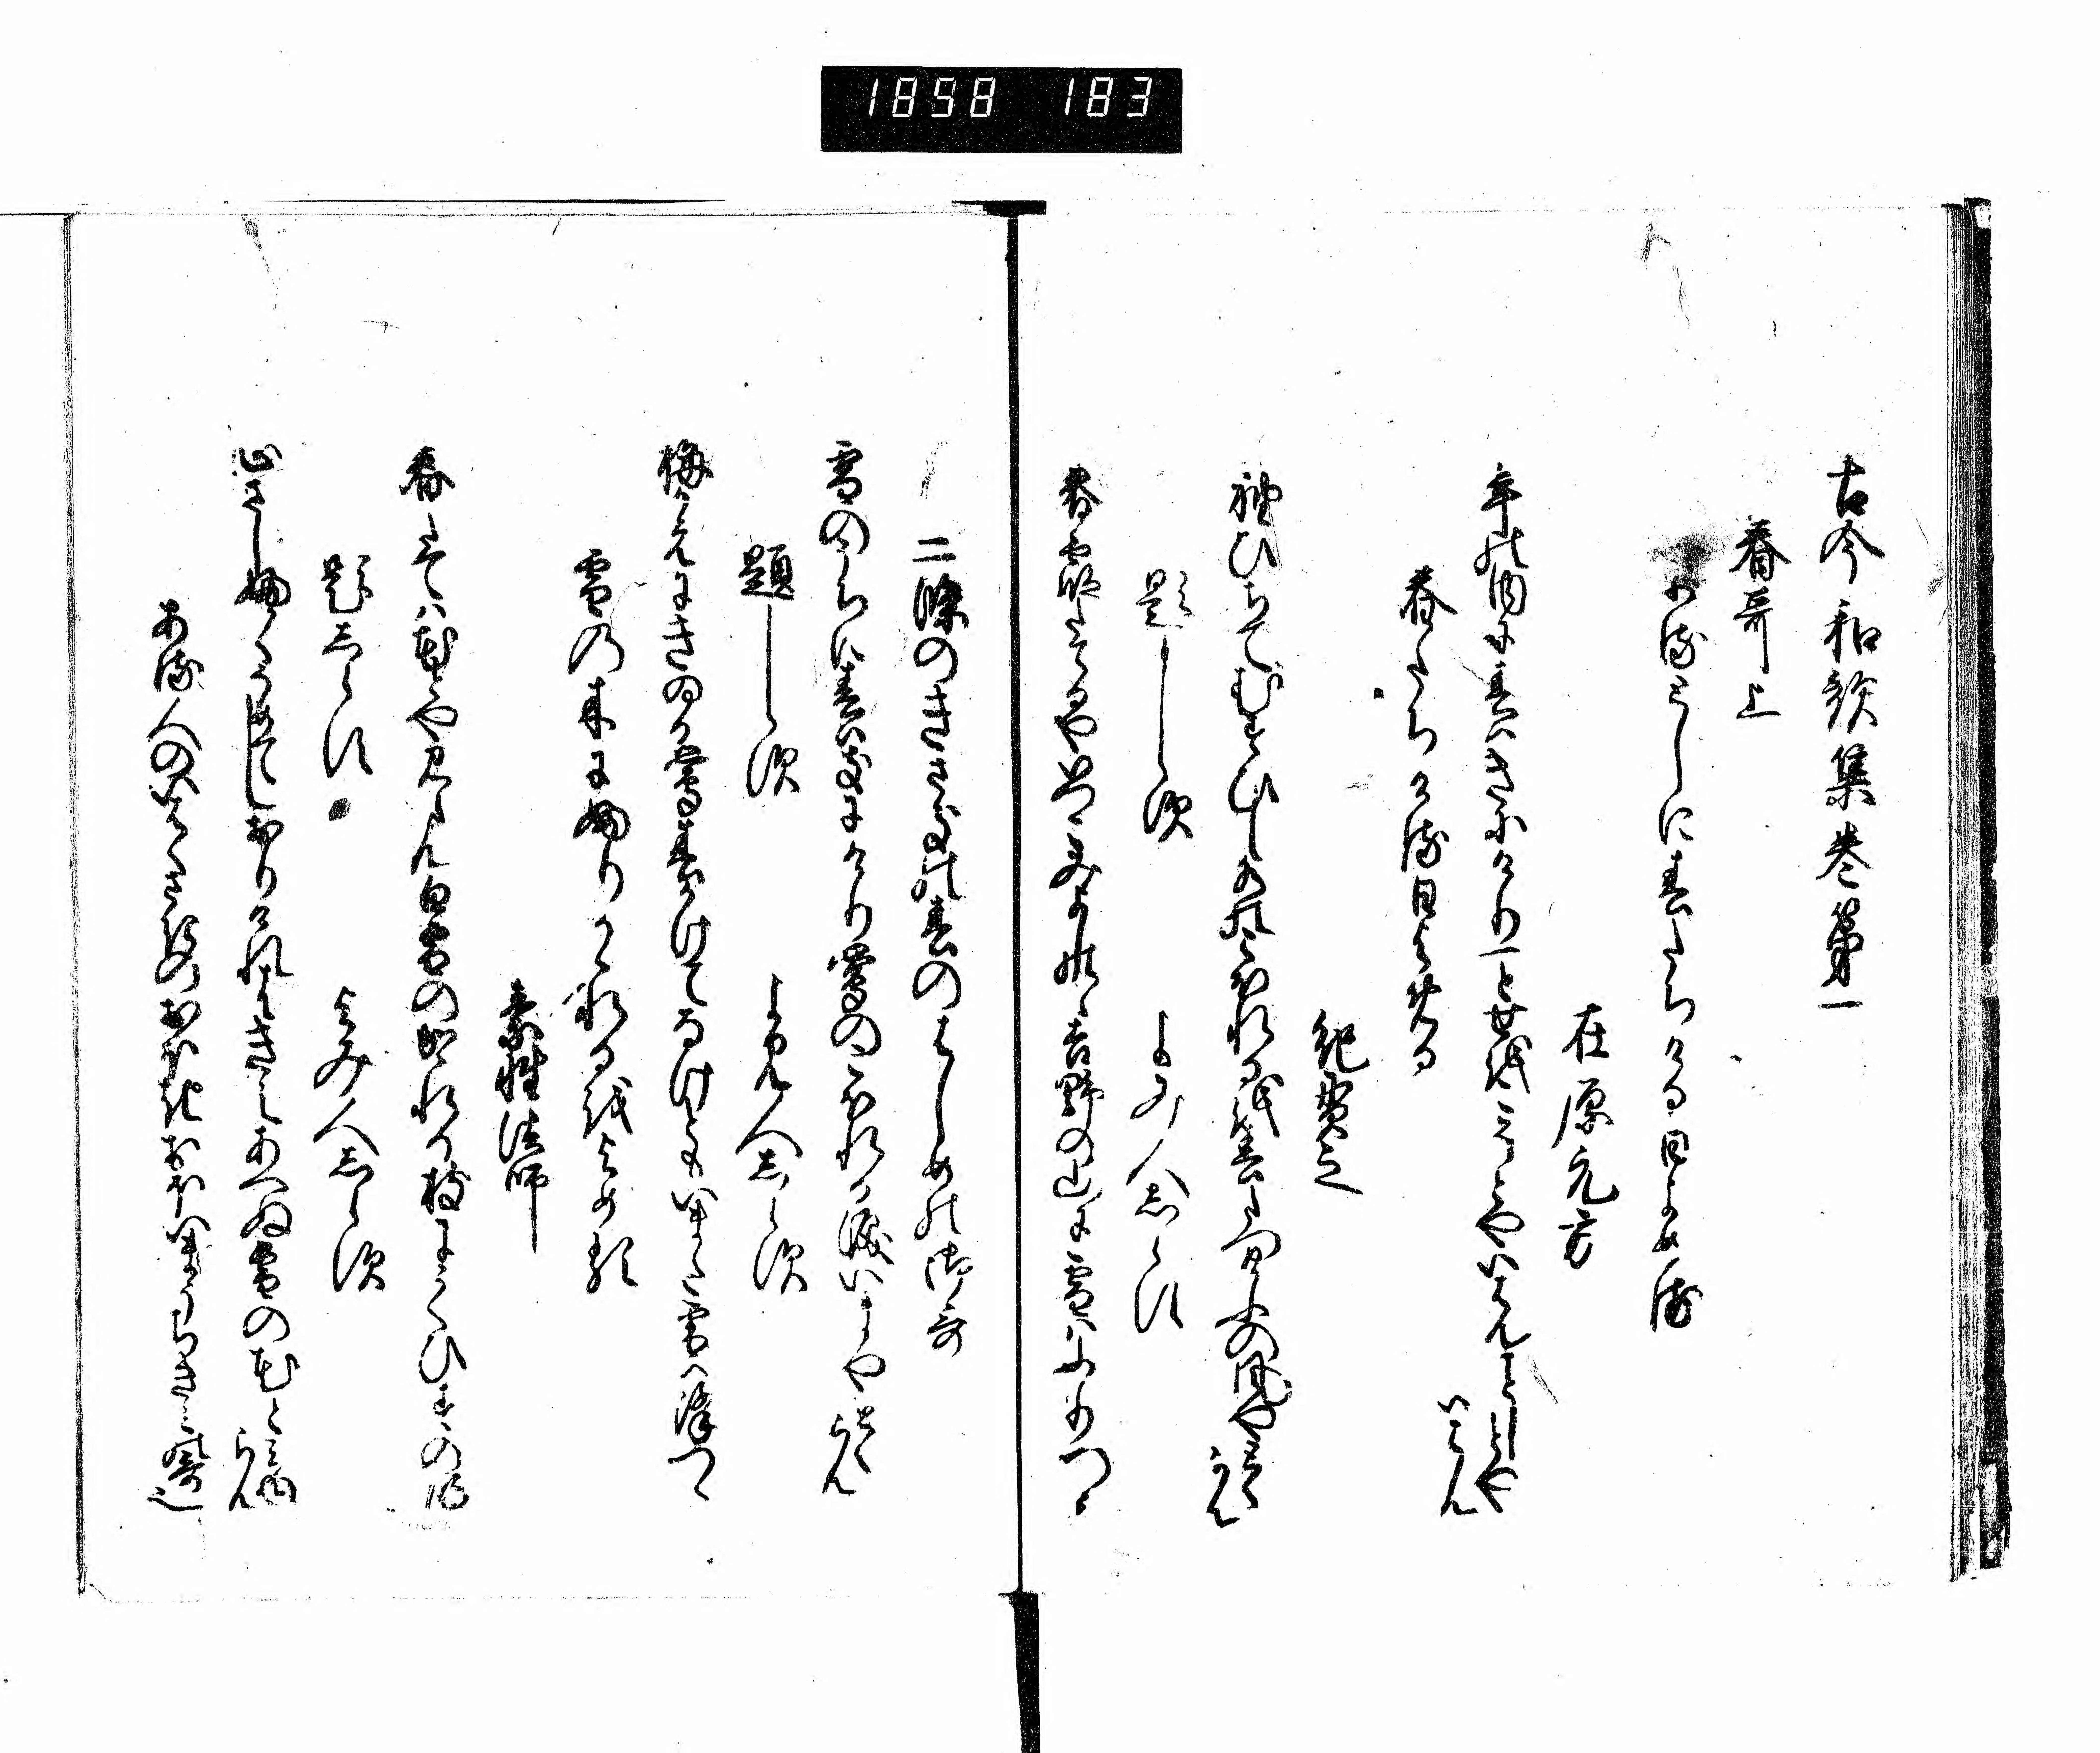 1858 183
古今和歌集巻第一
春哥上
ふるとしに春たちける日よめる
在原元方
年の内に春はきにけり一とせをこそとやいはんことしとや
いはん
春たちける日よめる
紀貫之
袖ひちてむすひし水のこほれるを春立けふの風やとく
らん
題しらす
よみ人しらす
春霞たてるやいつこみよしのゝ吉野の山に雪はふりつゝ
二条のきさきの春のはしめの御哥
雪のうちに春はきにけり鶯のこほれる涙いまやとく
らん
題しらす
よみ人しらす
梅かえにきゐる鶯春かけてなけともいまた雪はふりつゝ
雪の木にふりかゝれるをよめる
素性法師
春たては花とや見らん白雪のかゝれる枝にうくひすの啼
題しらす
よみ人しらす
心さしふかくそめてしおりけれはきえあへぬ雪の花と見ゆ
らん
ある人のいはくさきのおほきおほいまうちきみの哥也